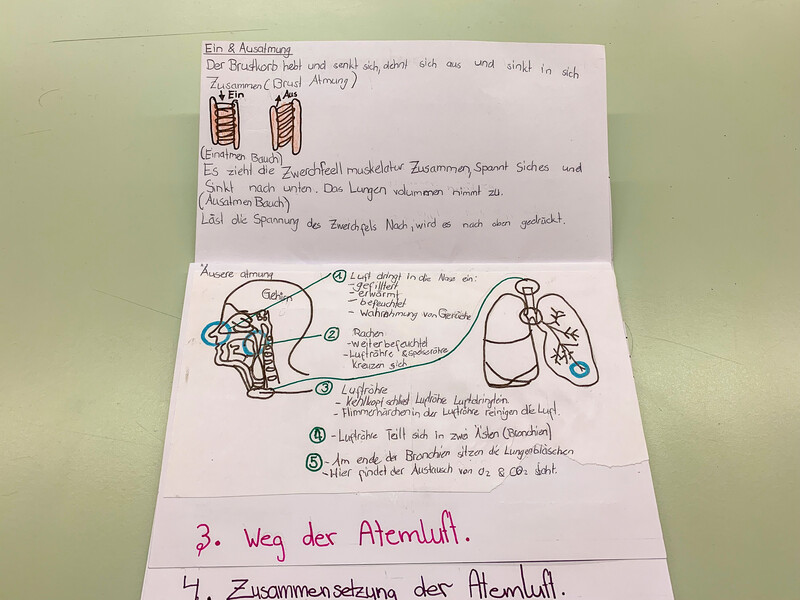 Ein & Ausatmung
Der Brustkorb hebt und senkt sich, dehnt sich aus und sinkt in sich
Zusammen (Brust Atmung)
Ein
Aus
(Einatmen Bauch)
Es zieht die Zwerchfeell muskelatur Zusammen, Spannt Siches und
Sinkt nach unten. Das Lungen volummen nimmt zu.
(Ausatmen Bauch)
Läst die Spannung des Zwerchfels Nach, wird es nach oben gedrückt.
Äusere atmung
Gehirn
1 Luft dringt in die Nase ein:
- gefilltert
- erwärmt
- befeuchtet
- Wahrnehmung von Gerüche
2 Rachen
- weiterbefeuchtet
- Luftröhre & Speiseröhre
kreuzen sich
3 Luftröhre
- Kehlkopf schließt Luftröhe Luftdringtein.
- Flimmerhärchen in der Luftröhre reinigen die Luft.
4 - Luftröhre Teilt sich in zwei Ästen (Bronchien)
5 - Am ende der Bronchien sitzen die Lungenbläschen
- Hier findet der Austausch von O2 & CO2 statt.
3. Weg der Atemluft.
4. Zusammensetzung der Atemluft.